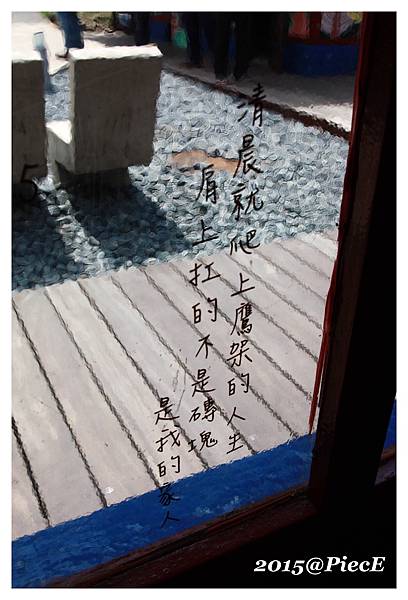 清晨就爬上鷹架的人生
肩上扛的不是磚塊
是我的家人
2015@PiecE